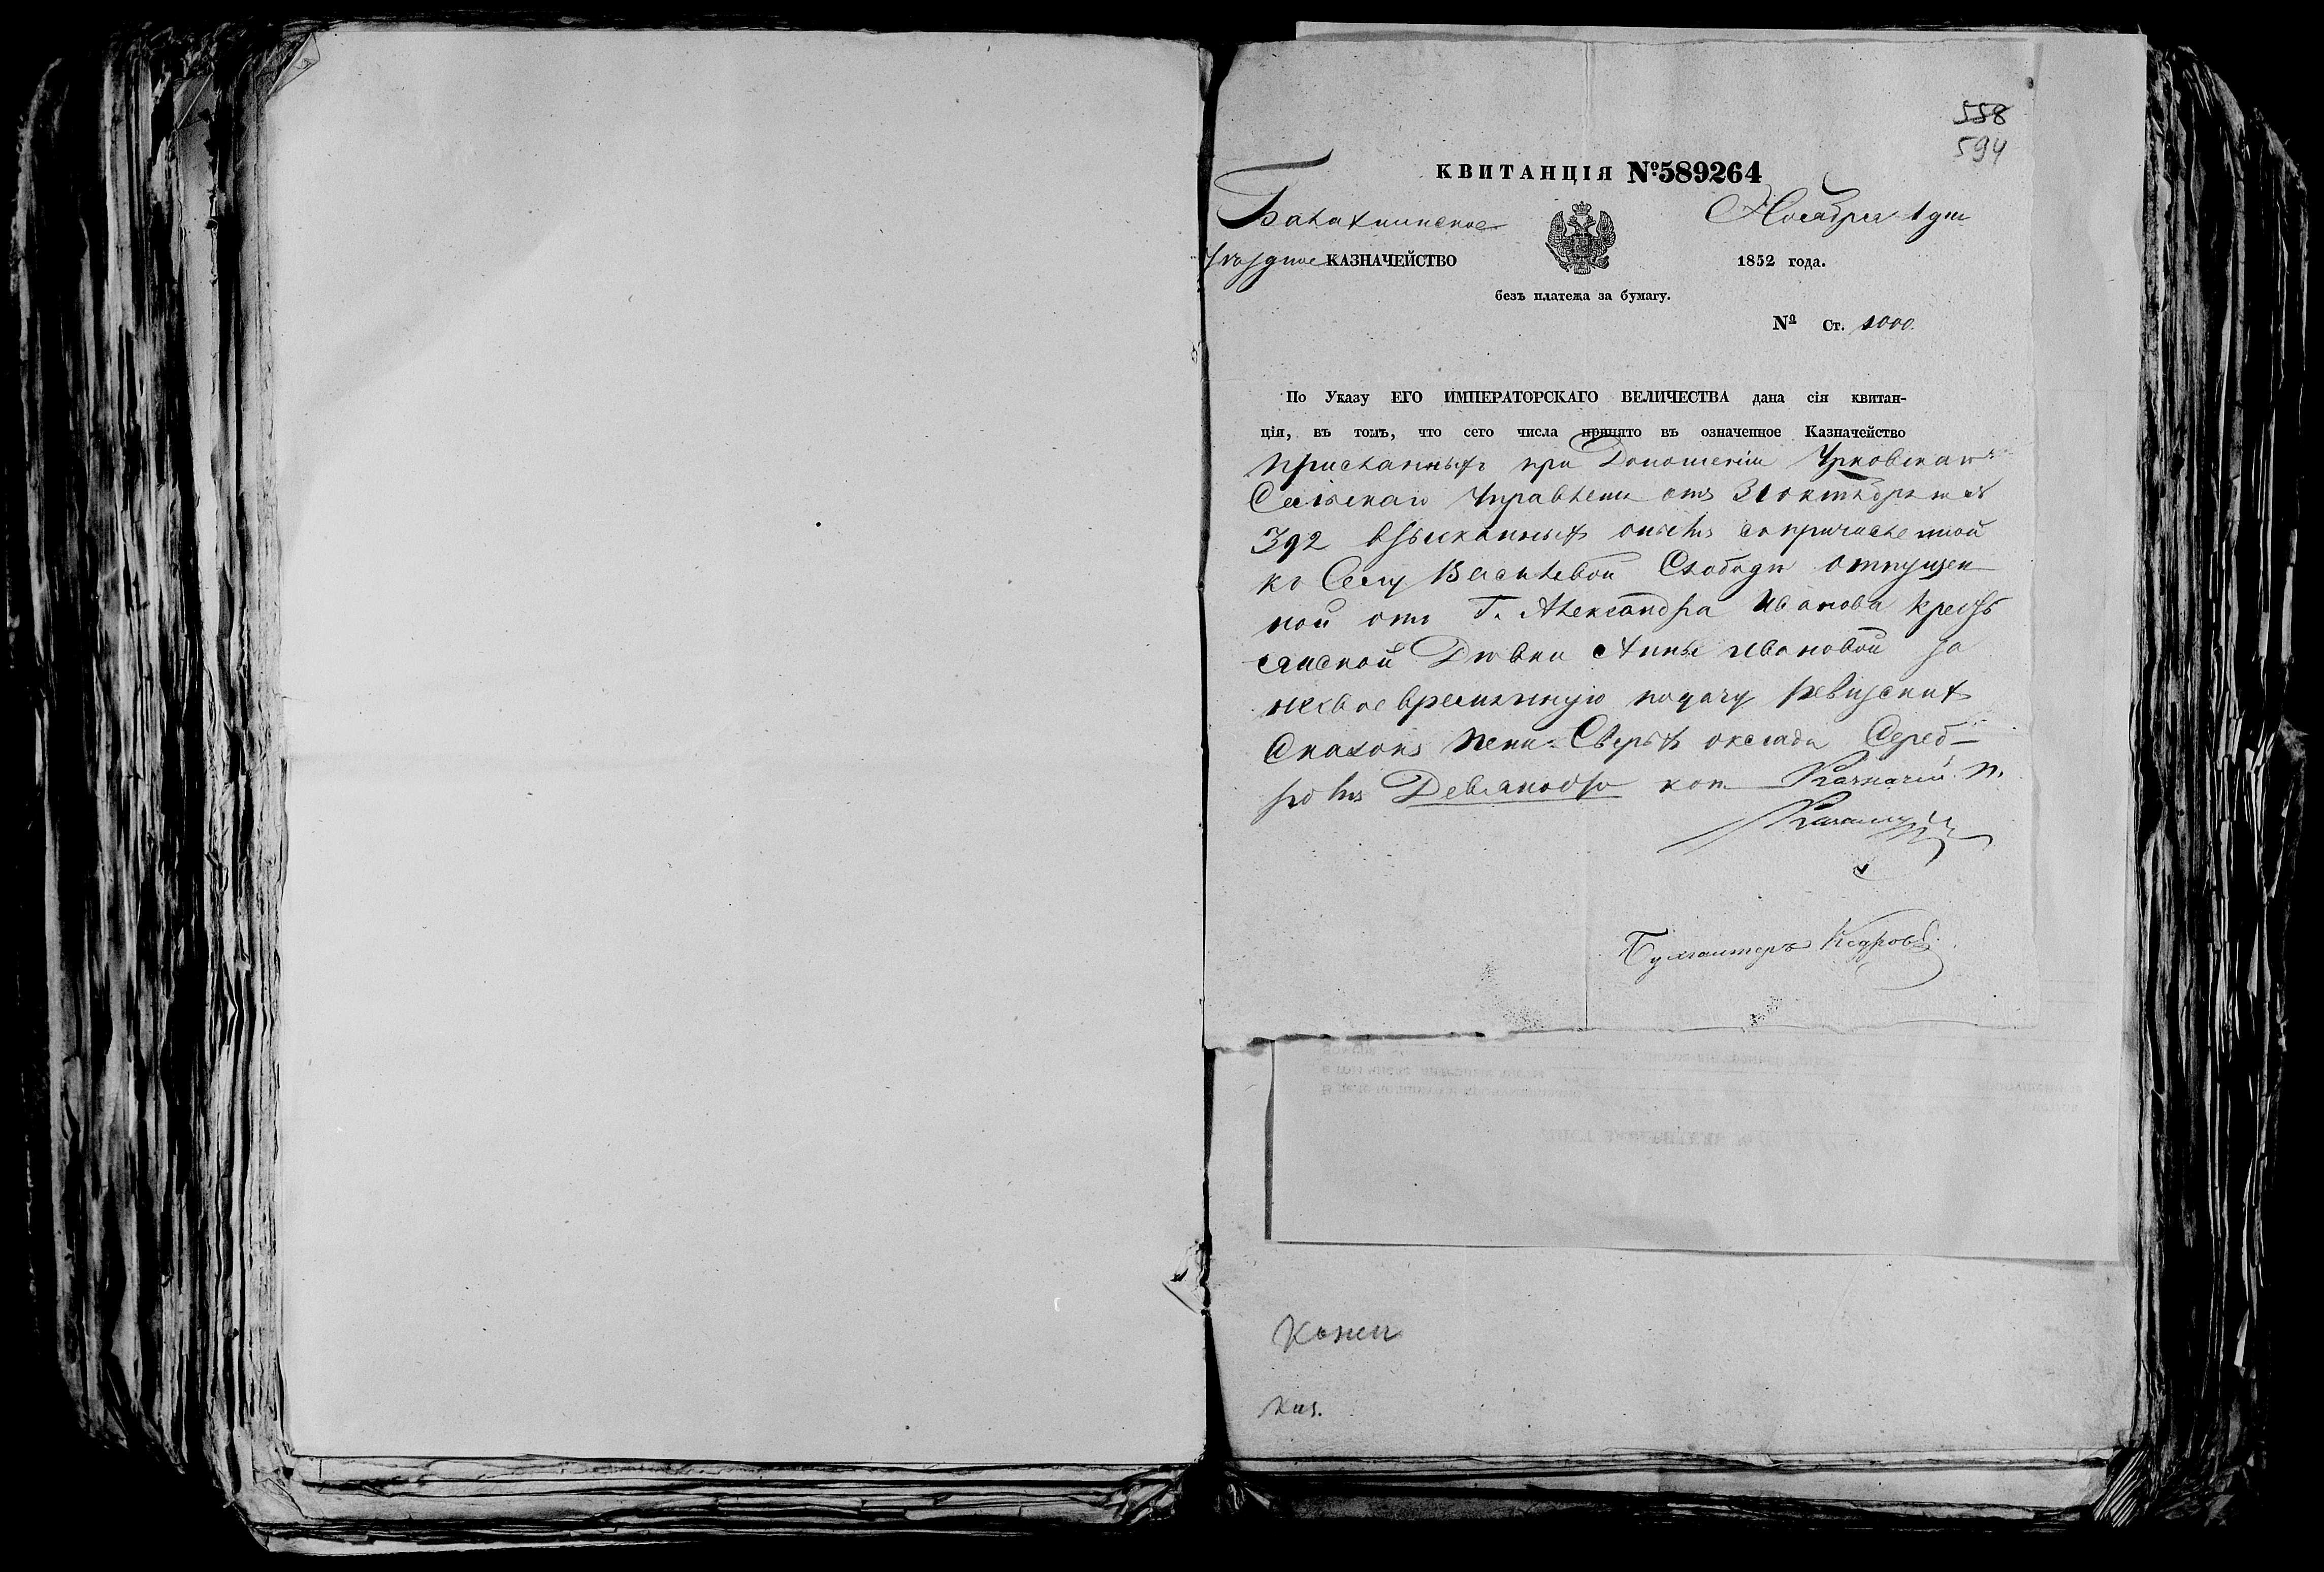 558
594
КВИТАНЦІЯ №589264
Балахнинское
Ноября 1 дня
Уѣздное КАЗНАЧЕЙСТВО
1852 года.
безъ платежа за бумагу.
№ Ст. 1000.
По Указу ЕГО ИМПЕРАТОРСКАГО ВЕЛИЧЕСТВА дана сія квитан-
ція, въ томъ, что сего числа принято въ означенное Казначейство
присланныхъ при Доношеніи
Сельскаго Управленія отъ 31 октября
392 взысканныхъ сопричисленной
къ Селу Васильевой Слободы отпущен
ной отъ Г. Александра Иванова кресть
янской Дѣвки Анны Ивановой за
несвоевременную подачу ревизскихъ
Сказокъ пени Сверхъ оклада Сереб-
ромъ Девяносто коп Казначей
Бухгалтеръ Кедровъ